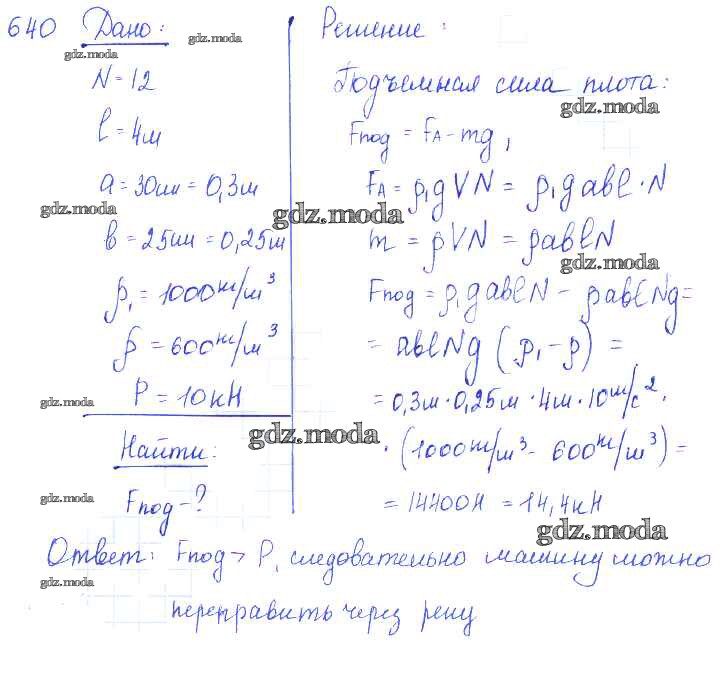 640 Дано:
gdz.moda
gdz.moda
N = 12
l = 4м
a = 30см = 0,3м
gdz.moda
b = 25см = 0,25м
ρ₁ = 1000 кг/м³
ρ = 600 кг/м³
P = 10кН
gdz.moda
Найти:
gdz.moda
Fпод - ?
Решение:
Подъемная сила плота:
gdz.moda
Fпод = FА - mg,
FА = ρ₁gVN = ρ₁gabl·N
gdz.moda
m = ρVN = ρablN
gdz.moda
Fпод = ρ₁gablN - ρablNg =
= ablNg (ρ₁ - ρ) =
= 0,3м · 0,25м · 4м · 10м/с² ·
gdz.moda
· (1000кг/м³ - 600кг/м³) =
= 14400Н = 14,4кН
gdz.moda
Ответ: Fпод > P, следовательно машину можно
gdz.moda
переправить через реку